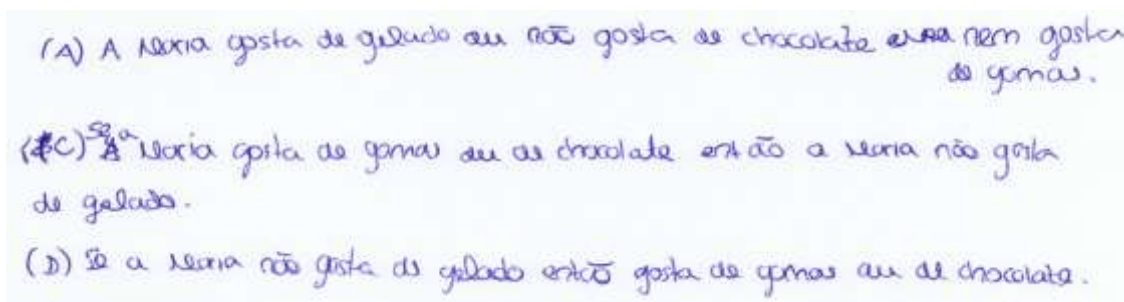 (A) A Maria gosta de gelado ou não gosta de chocolate nem gosta
de gomas.
(C) Se a Maria gosta de gomas ou de chocolate então a Maria não gosta
de gelado.
(D) Se a Maria não gosta de gelado então gosta de gomas ou de chocolate.